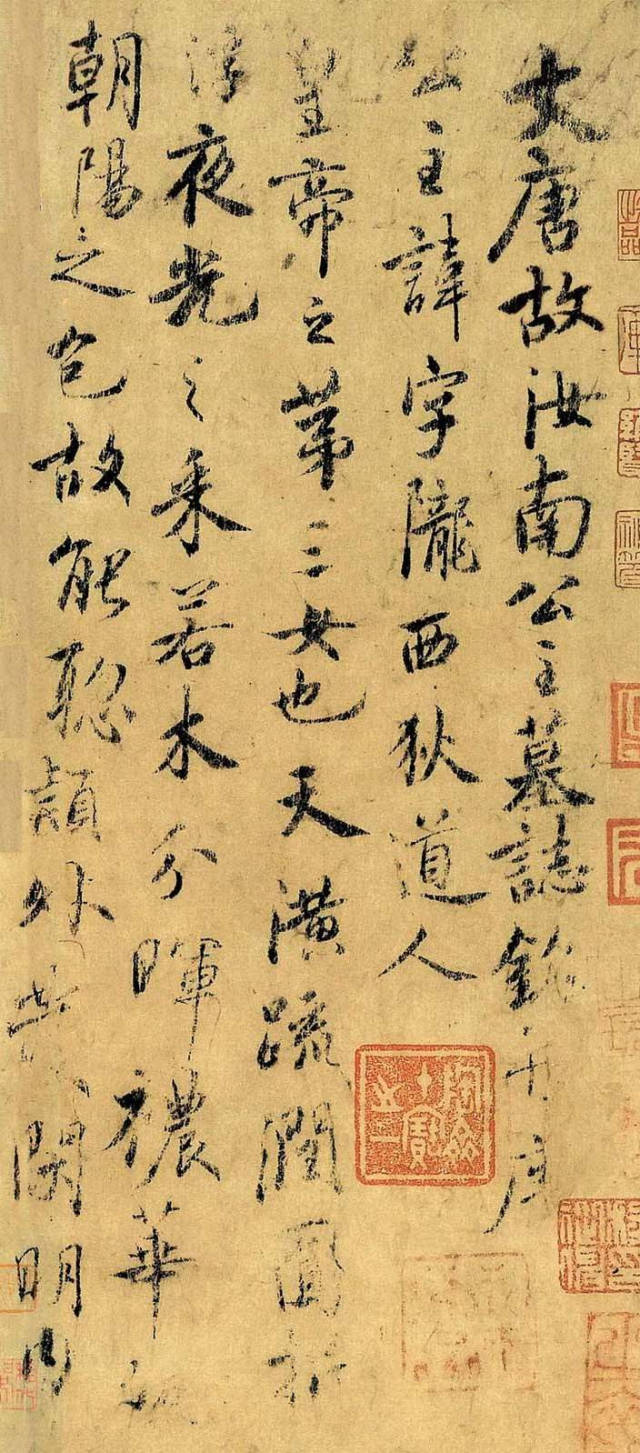 大唐故汝南公主墓誌銘并序
公主諱字隴西狄道人
皇帝之第三女也天潢疏潤圓折
浮夜光之采若木分暉穠華
朝陽之色故能聰穎外發閑明内